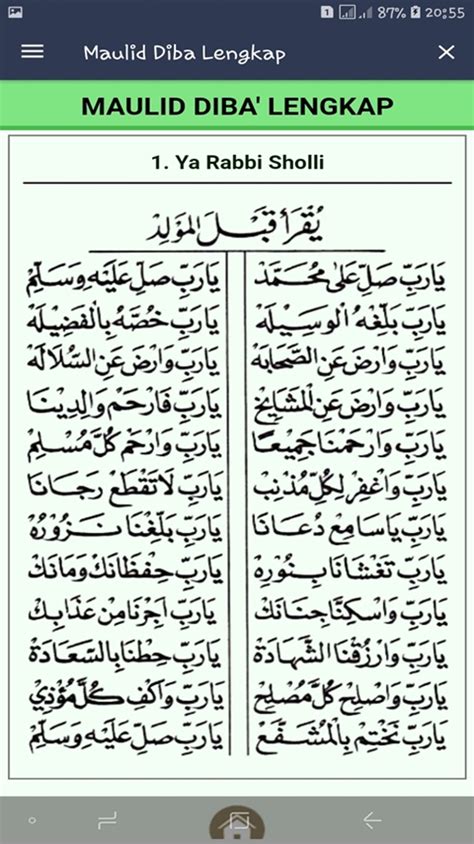 1 87% 20:55
Maulid Diba Lengkap
MAULID DIBA' LENGKAP
1. Ya Rabbi Sholli
يُقْرَأُ قَبْلَ الْمَوْلِدِ
يَارَبِّ صَلِّ عَلَى مُحَمَّدْ يَارَبِّ صَلِّ عَلَيْهِ وَسَلِّمْ
يَارَبِّ بَلِّغْهُ الْوَسِيْلَهْ يَارَبِّ خُصَّهُ بِالْفَضِيْلَهْ
يَارَبِّ وَارْضَ عَنِ الصَّحَابَهْ يَارَبِّ وَارْضَ عَنِ السُّلَالَهْ
يَارَبِّ وَارْضَ عَنِ الْمَشَايِخْ يَارَبِّ فَارْحَمْ وَالِدِيْنَا
يَارَبِّ وَارْحَمْنَا جَمِيْعًا يَارَبِّ وَارْحَمْ كُلَّ مُسْلِمْ
يَارَبِّ وَاغْفِرْ لِكُلِّ مُذْنِبْ يَارَبِّ لَاتَقْطَعْ رَجَانَا
يَارَبِّ يَاسَامِعْ دُعَانَا يَارَبِّ بَلِّغْنَا نَزُوْرُهْ
يَارَبِّ تَغْشَانَا بِنُوْرِهْ يَارَبِّ حِفْظَانَكْ وَمَانَكْ
يَارَبِّ وَاسْكِنَّا جِنَانَكْ يَارَبِّ اَجِرْنَا مِنْ عَذَابِكْ
يَارَبِّ وَارْزُقْنَا الشَّهَادَةْ يَارَبِّ حِطْنَا بِالسَّعَادَةْ
يَارَبِّ وَاصْلِحْ كُلَّ مُصْلِحْ يَارَبِّ وَاكْفِ كُلَّ مُؤْذِيْ
يَارَبِّ نَخْتِمْ بِالْمُشَفَّعْ يَارَبِّ صَلِّ عَلَيْهِ وَسَلِّمْ